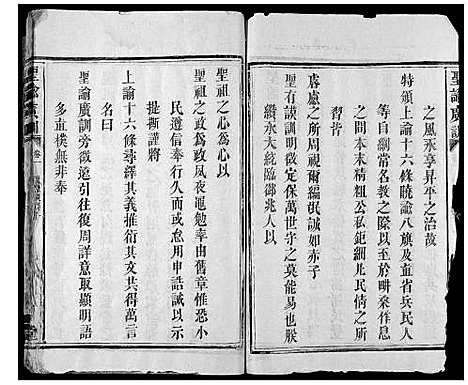 聖諭廣訓
之風永享昇平之治故
特頒上諭十六條曉諭八旗及直省兵民人
等自綱常名教之際以至於耕桑作息
之間本末精粗公私鉅細凡民情之所
習皆
睿慮之所周視爾編氓誠如赤子
聖有謨訓明徵定保萬世守之莫能易也
纘承大統臨御兆人以
聖祖之心為心以
聖祖之政為政夙夜黽勉率由舊章惟恐小
民遵信奉行久而或怠用申誥誡以示
提撕謹將
上諭十六條尋繹其義推衍其文共得萬言
名曰
聖諭廣訓旁徵遠引往復周詳意取顯明語
多直樸無非奉
聖諭廣訓